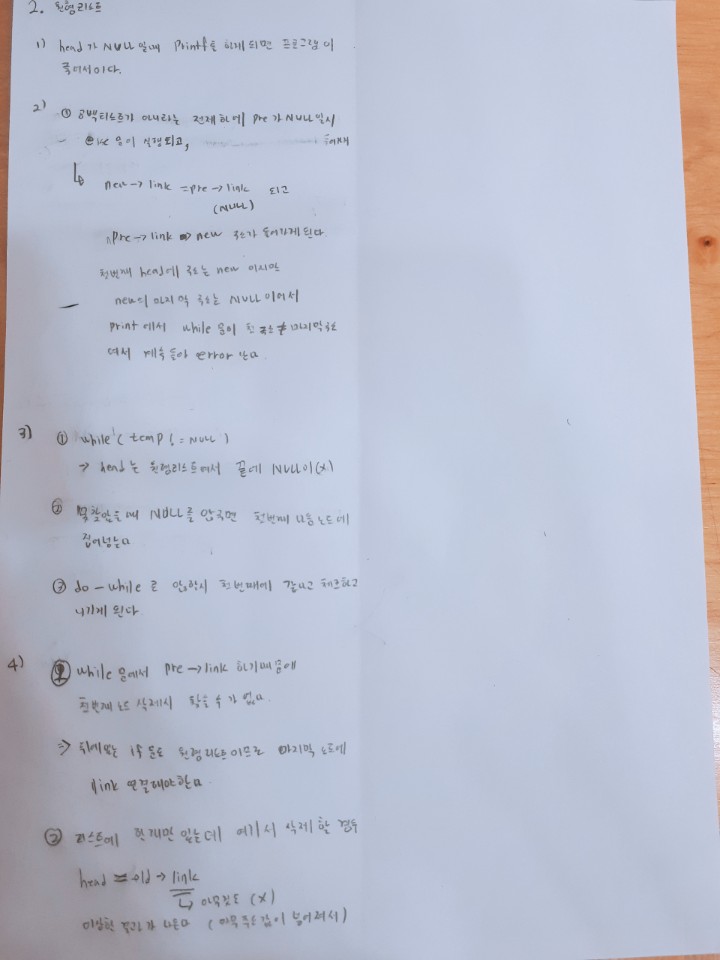 2. 원형리스트
1) head가 NULL일때 Printf를 하게 되면 프로그램이
죽어서이다.
2) ① 공백리스트가 아니라는 전제하에 Pre가 NULL일시
else 문이 실행되고,
↳ new → link = pre → link 되고
(NULL)
Pre → link => new 주소가 들어가게된다
첫번째 head에 주소는 new 이지만
new의 마지막 주소는 NULL이어서
print에서 while 문이 첫주소 ≠ 마지막주소
여서 계속 돌아 error 난다.
3) ① while (temp != NULL)
→ head는 원형리스트여서 끝에 NULL이(x)
② 못찾았을때 NULL를 안주면 첫번째 다음노드에
집어넣는다
③ do-while로 안할시 첫번째에 같다고 체크하고
나가게 된다.
4) ① while 문에서 Pre → link 하기때문에
첫번째 노드 삭제시 찾을수가 없다.
⇒ 위에있는 if 문도 원형리스트이므로 마지막노드에
link 연결해야한다.
② 리스트에 한개만 있는데 여기서 삭제할 경우
head = old → link
↳ 아무것도 (x)
이상한 결과가 나온다 (아무주소값이 넣어져서)